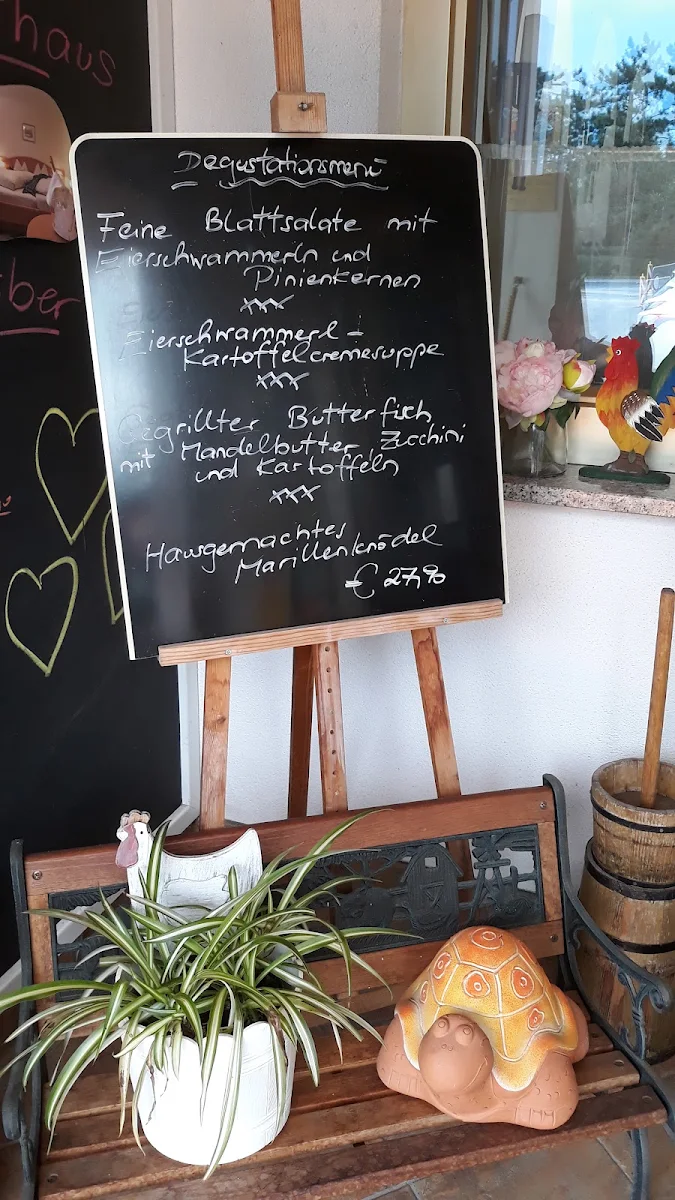 Degustationsmenü
Feine Blattsalate mit
Eierschwammerln und
Pinienkernen
xxx
Eierschwammerl-
Kartoffelcremesuppe
xxx
Gegrillter Butterfisch
mit Mandelbutter, Zucchini
und Kartoffeln
xxx
Hausgemachtes
Marillenknödel
€ 27,90
haus
ber